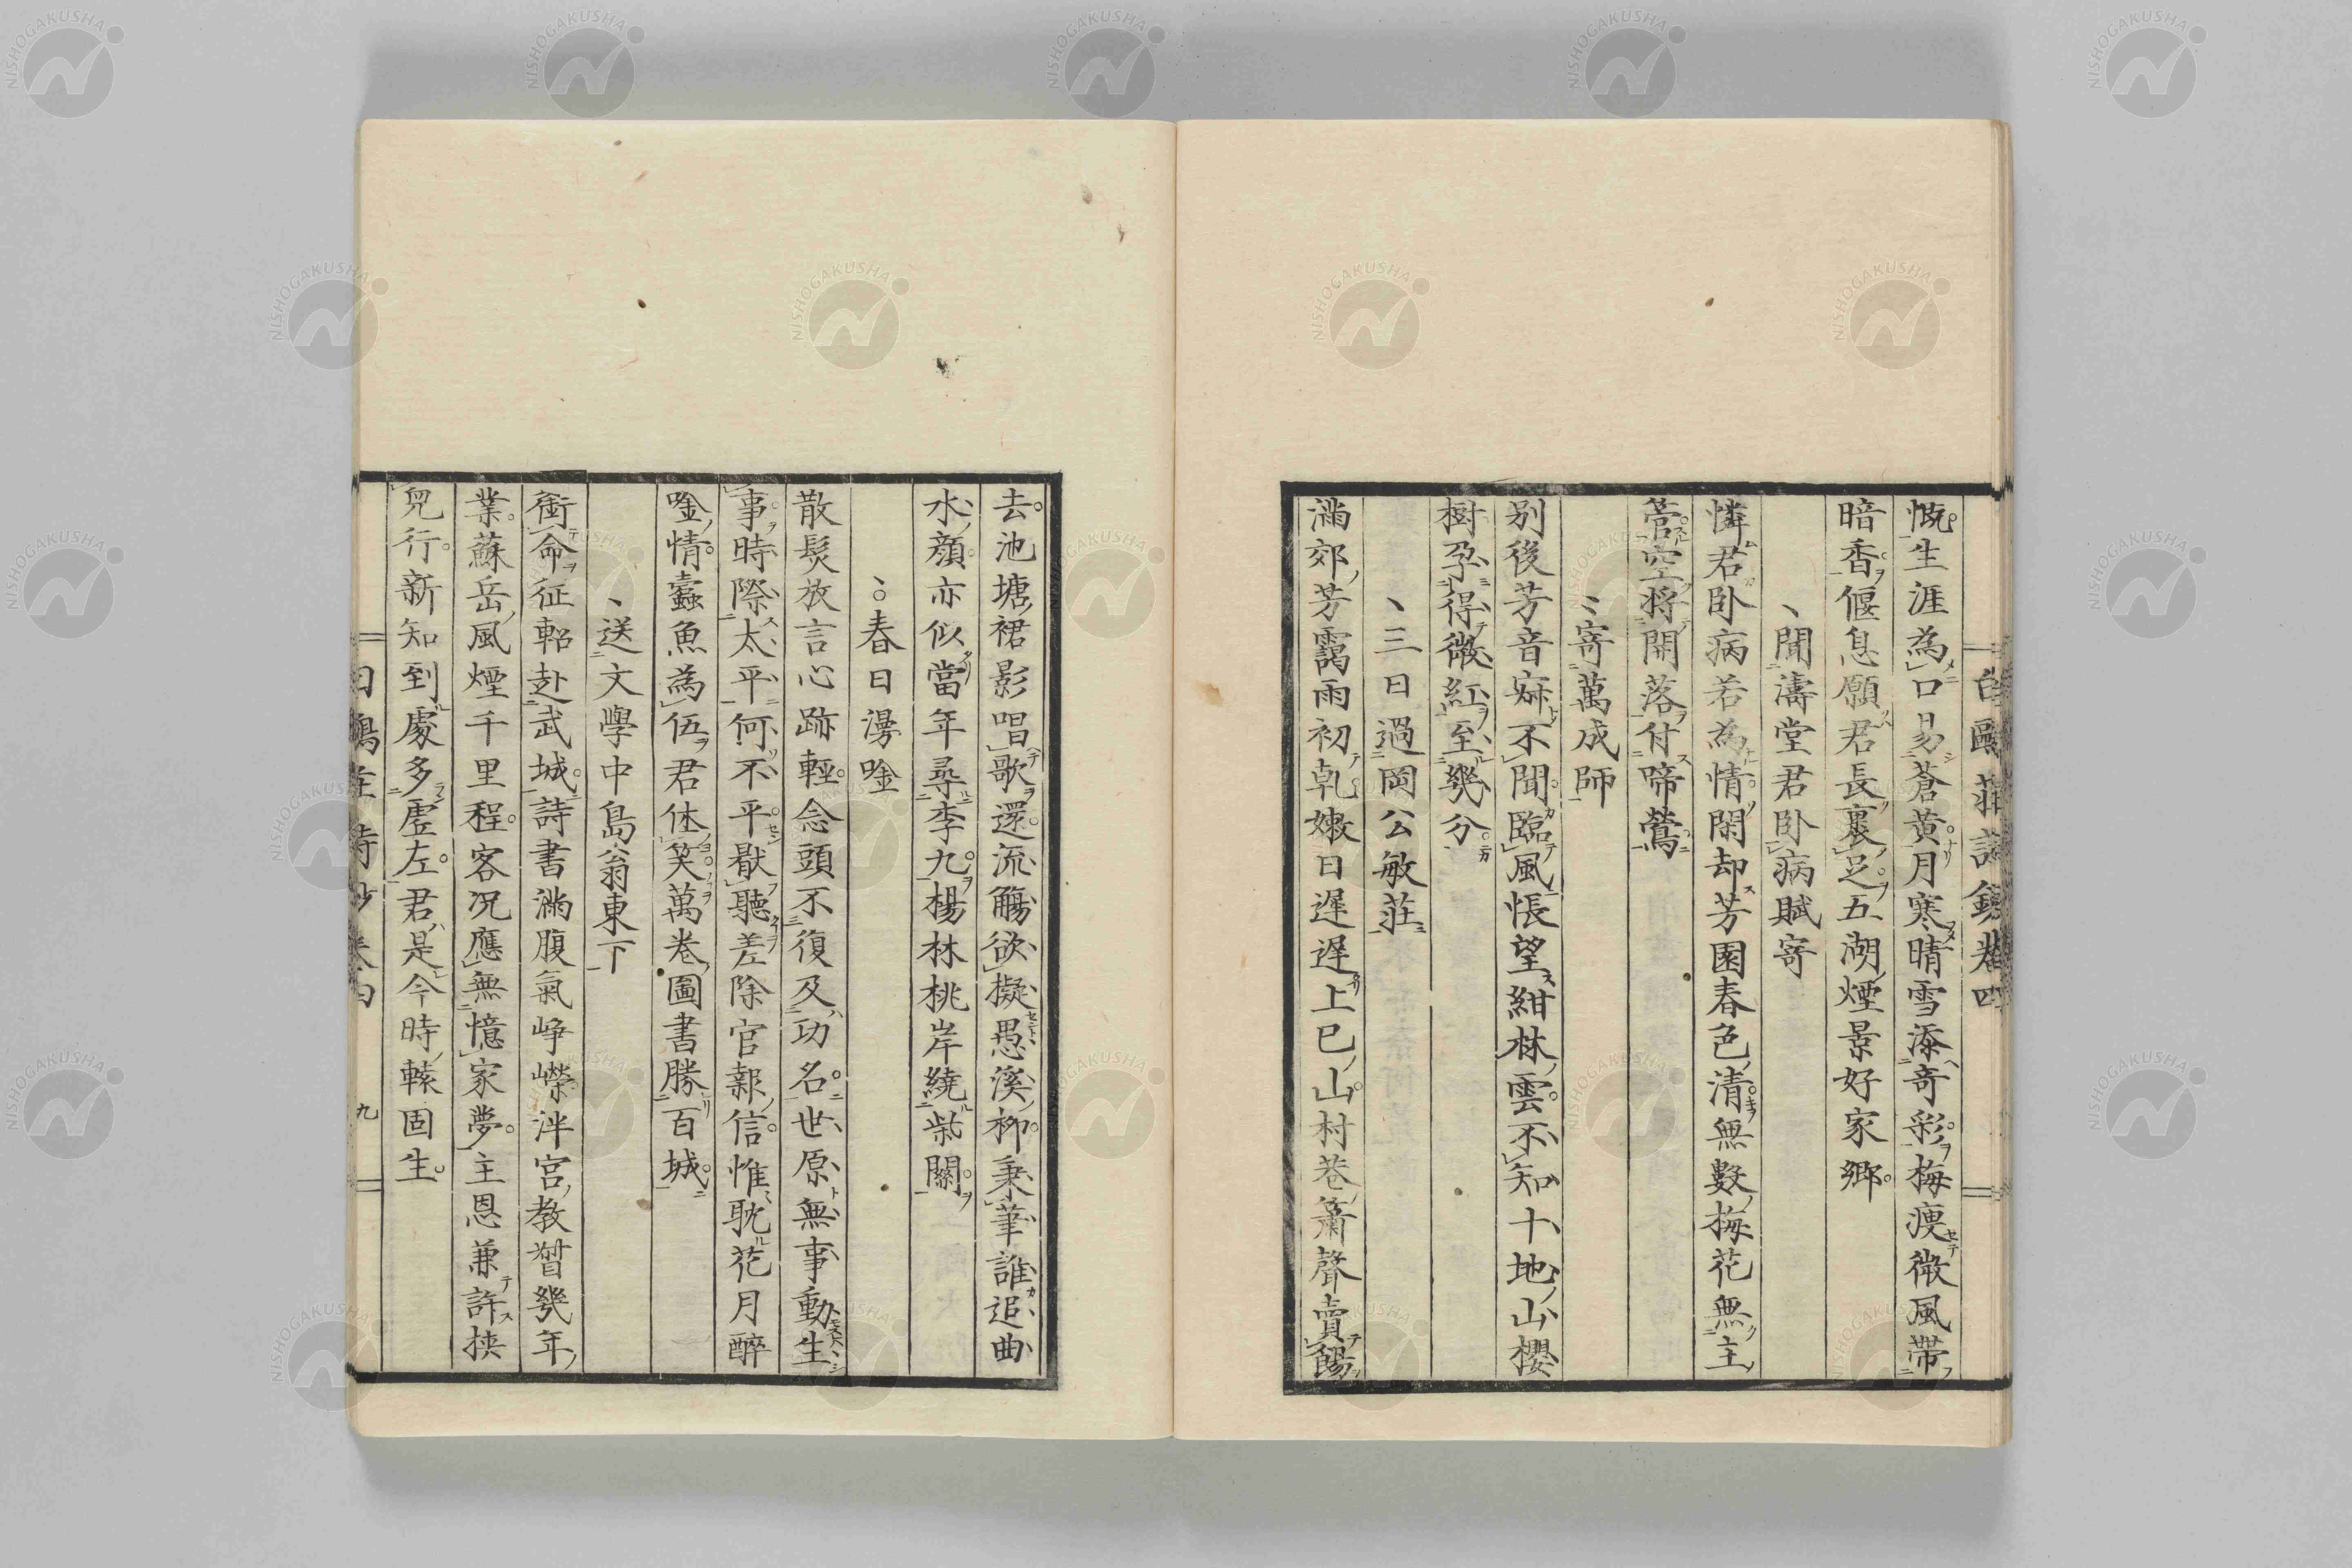 慨生涯為口易蒼黄月寒晴雪添竒彩梅瘦微風帶
暗香偃息願君長裹足五湖煙景好家鄉
聞濤堂君卧病賦寄
憐君卧病若為情閑却芳園春色清無數梅花無主
管空将開落付啼鶯
寄萬成師
别後芳音寐不聞臨風悵望紺林雲不知十地山櫻
樹孕得微紅至幾分
三日過岡公敏莊
滿郊芳靄雨初乹嫩日遲遲上巳山村巷簫聲賣餳
去池塘裙影唱歌還流觴欲擬愚溪柳秉筆誰追曲
水顔亦似當年尋李九楊林桃岸繞柴關
春日漫唫
散髮放言心跡輕念頭不復及功名世原無事動生
事時際太平何不平厭聽差除官報信惟耽花月醉
唫情蠧魚為伍君休笑萬卷圖書勝百城
送文學中島翁東下
銜命征軺赴武城詩書滿腹氣崢嶸泮宮教督幾年
業蘇岳風煙千里程客况應無憶家夢主恩兼許挾
兒行新知到處多虚左君是今時轅固生
九